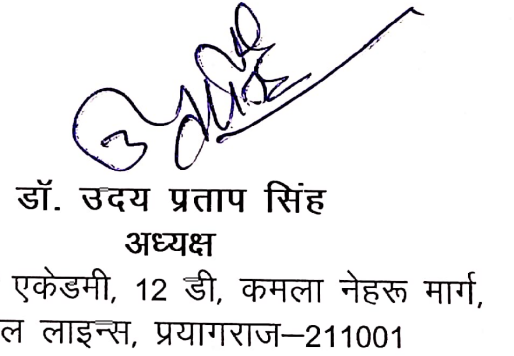 डॉ. उदय प्रताप सिंह
अध्यक्ष
एकेडमी, 12 डी, कमला नेहरू मार्ग,
ल लाइन्स, प्रयागराज–211001